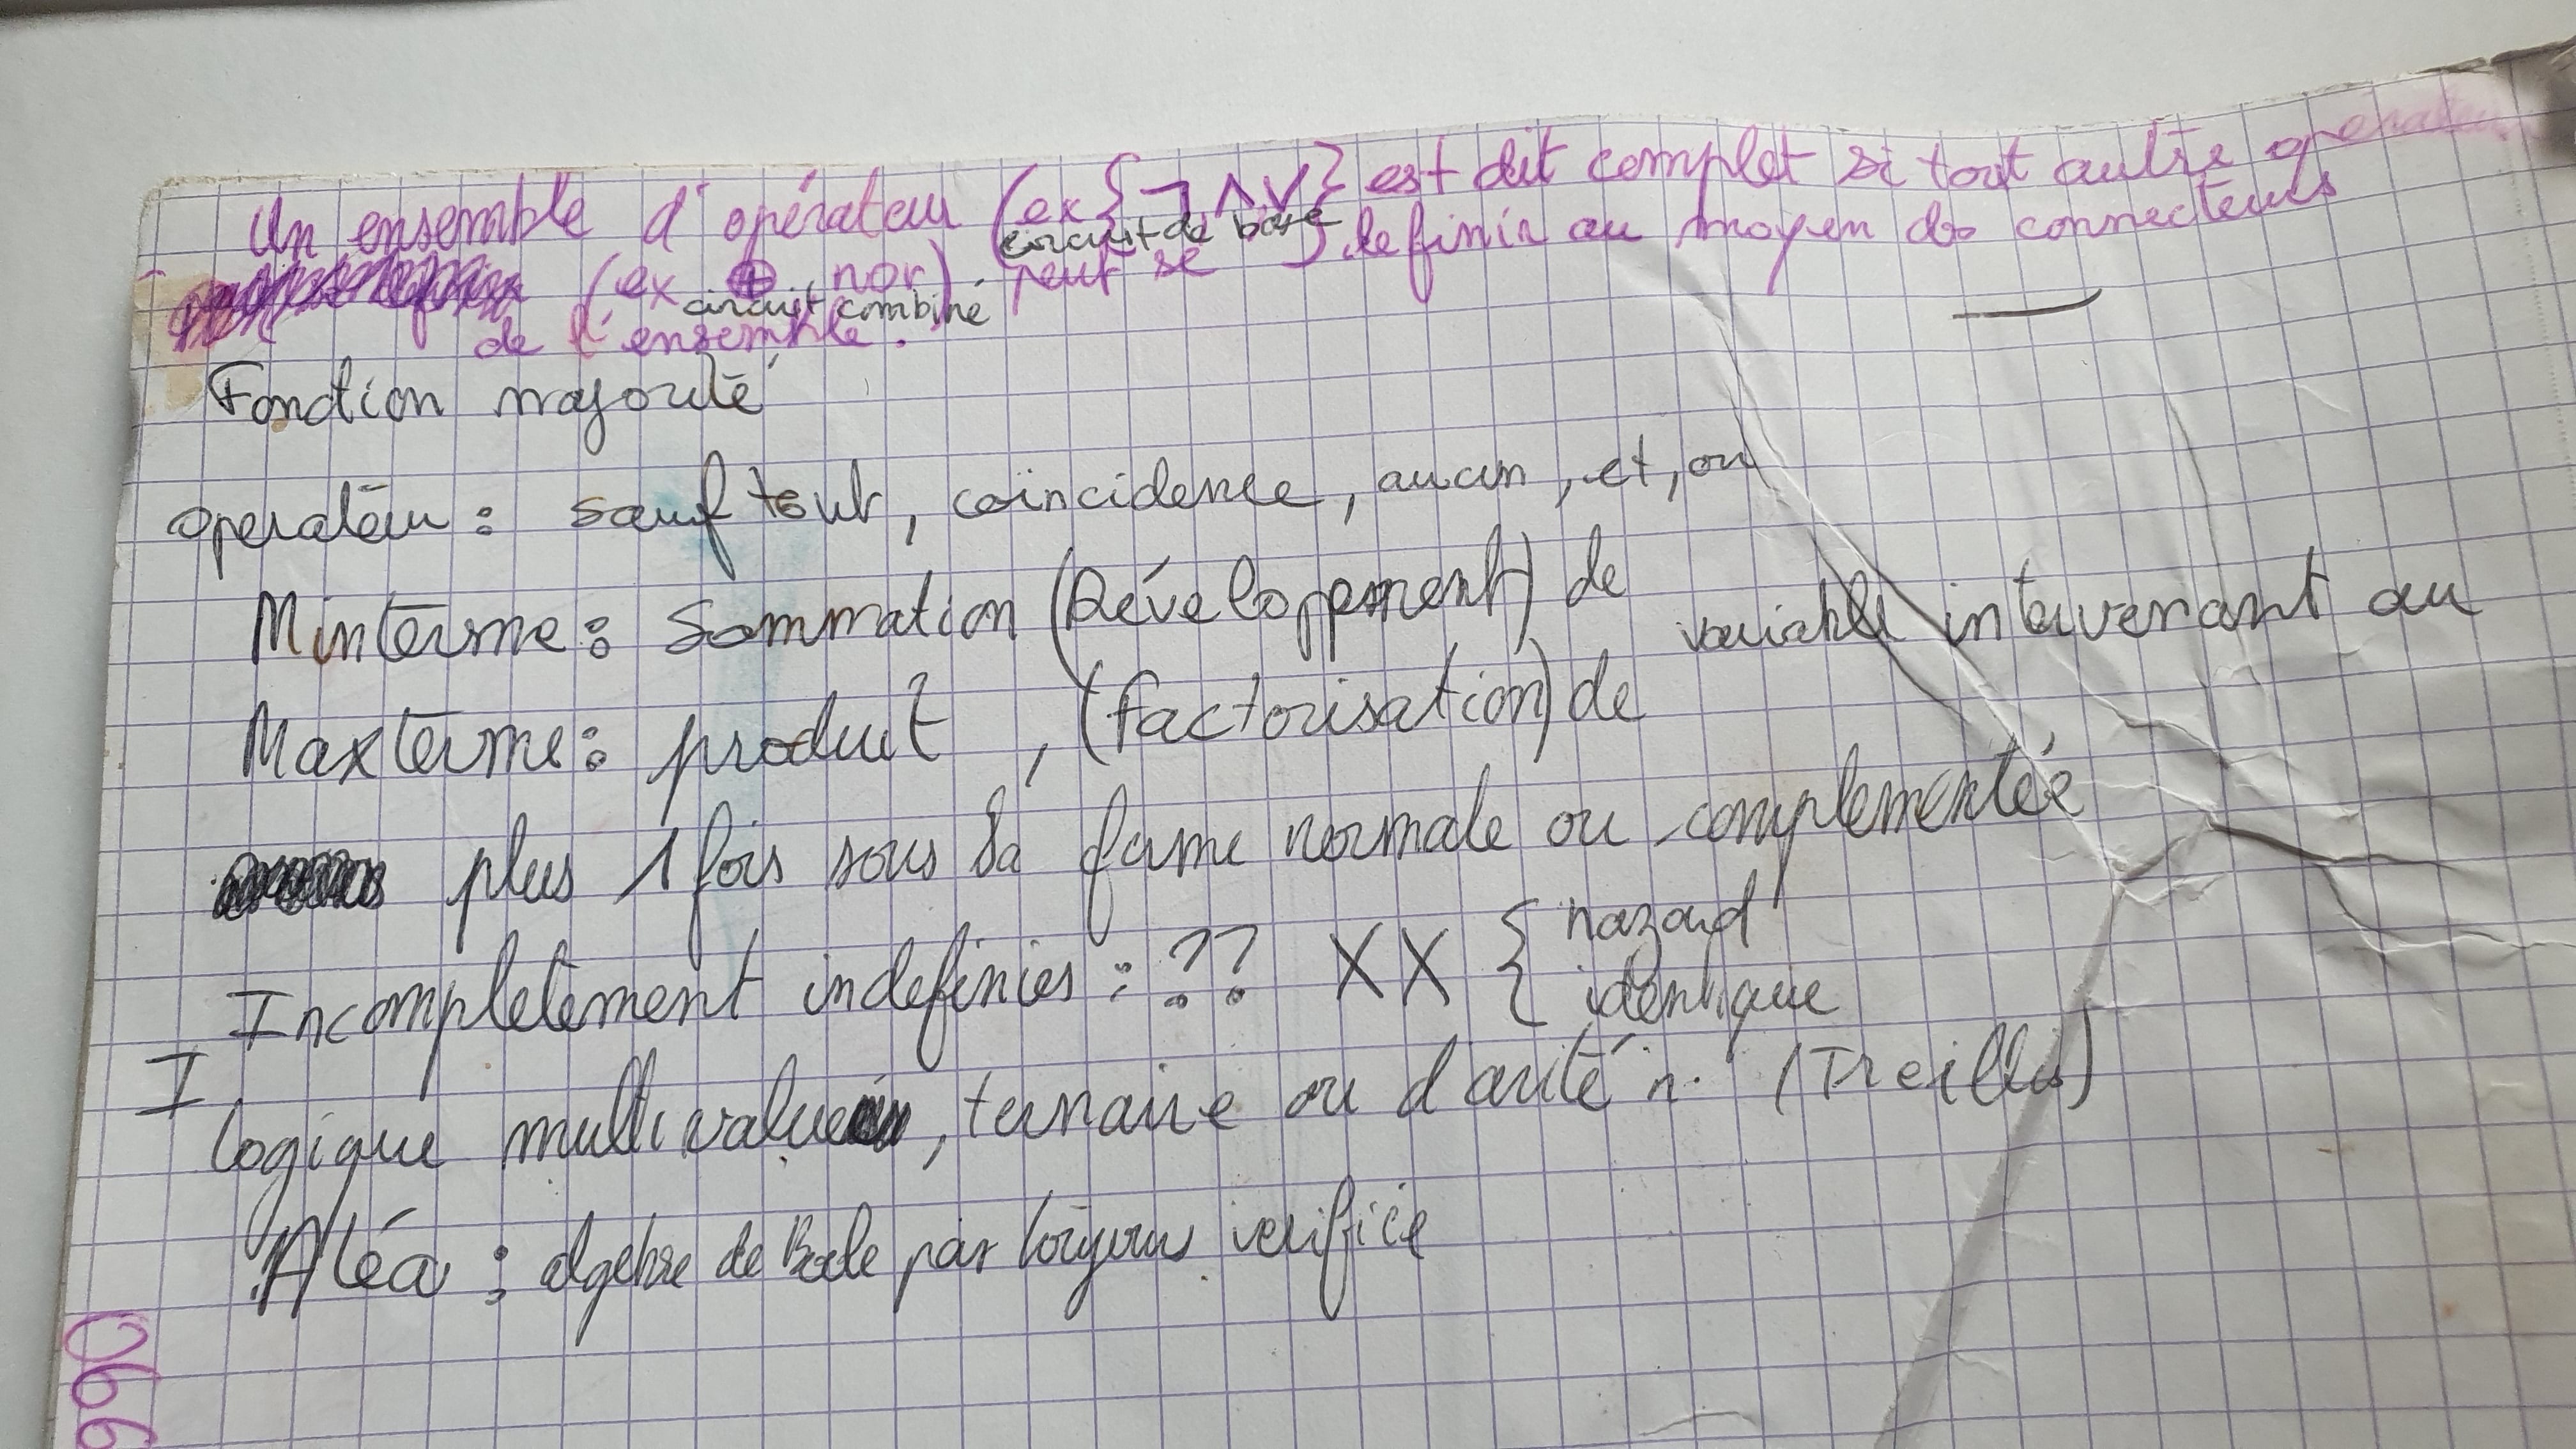 Un ensemble d'opérateur (ex {¬ ∧ ∨} est dit complet si tout autre operateur
circuit de base
(ex ⊕, nor) peut se definir au moyen de connecteurs
circuit combiné
de l'ensemble.
Fonction majorité
operateur : sauf tout, coïncidence, aucun, et, ou
Minterme : Sommation (Développement) de
variable intervenant au
Maxterme : produit, (factorisation) de
plus 1 fois sous sa forme normale ou complementée
Incompletement indefinies : ?? XX { hazard
identique
I
logique multi value, ternaire ou d'arité n. (Treillis)
Aléa : algebre de Boole pas toujours verifiee
066